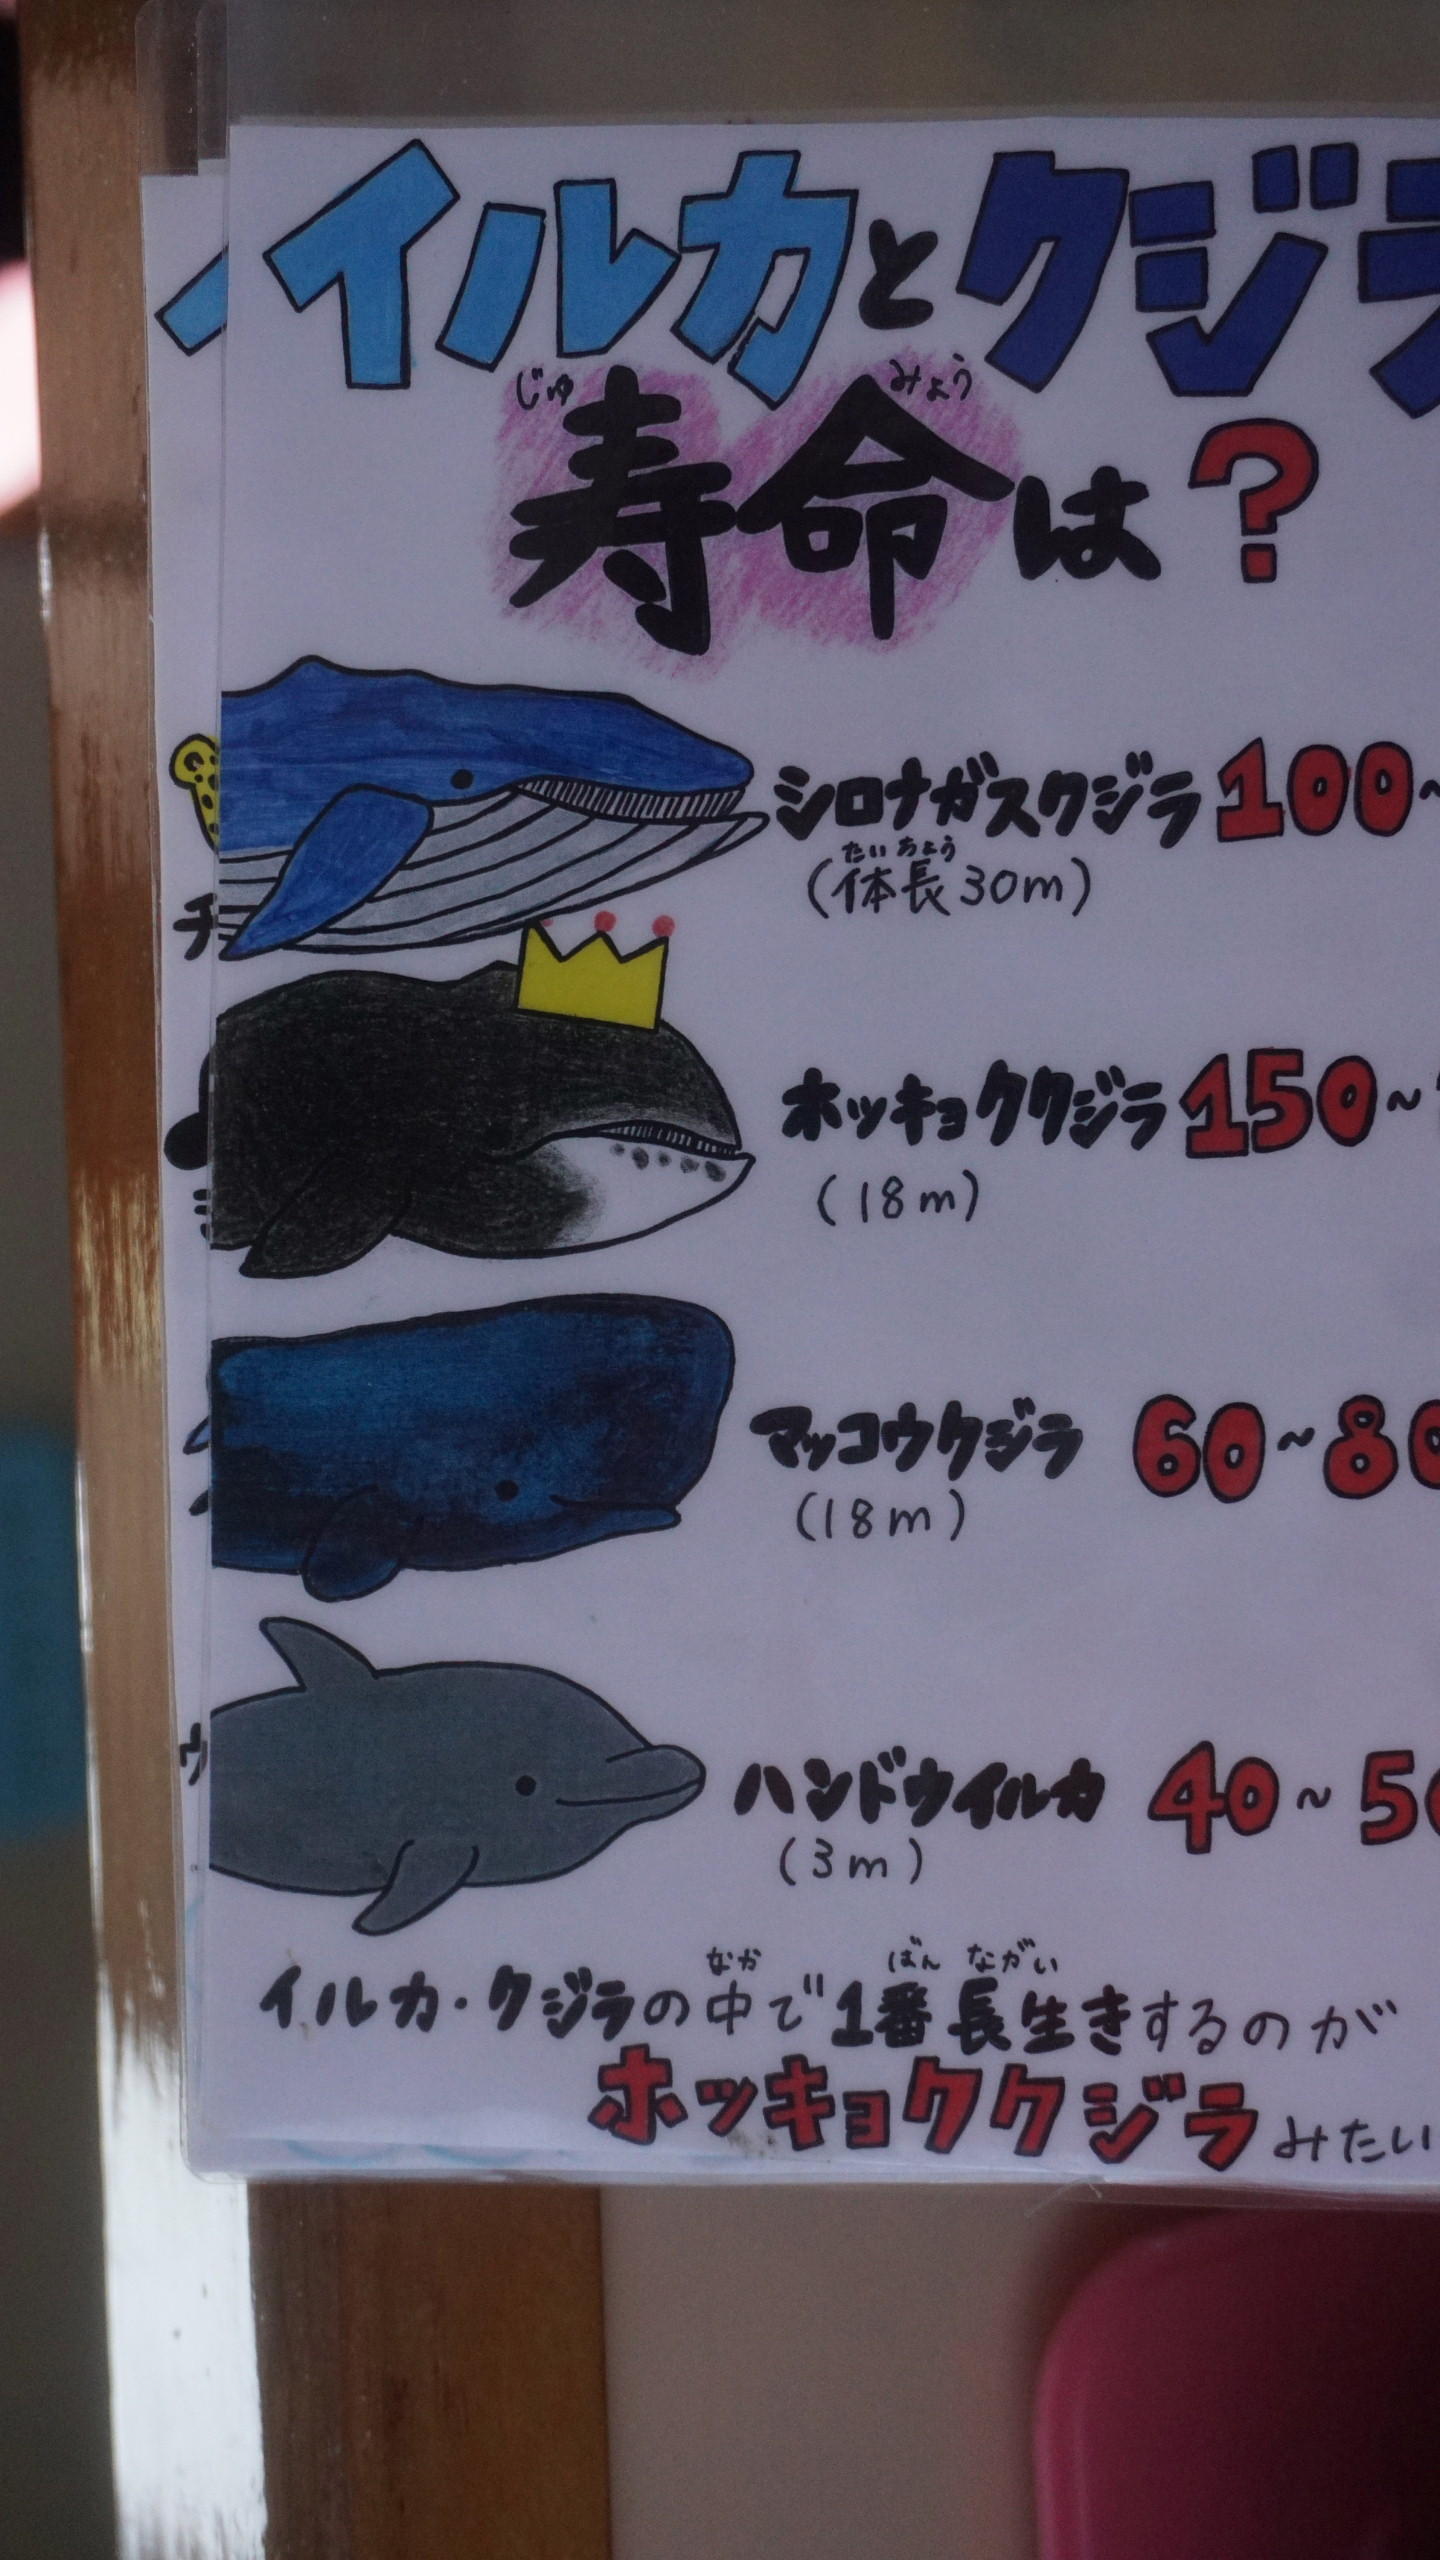 イルカとクジラ
じゅ みょう
寿命は?
シロナガスクジラ 100~
たいちょう
(体長30m)
ホッキョククジラ 150~
(18m)
マッコウクジラ 60~80
(18m)
ハンドウイルカ 40~50
(3m)
なか ばん ながい
イルカ・クジラの中で1番長生きするのが
ホッキョククジラみたい